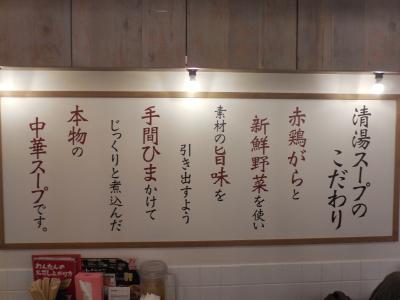 清湯スープの
こだわり
赤鶏がらと
新鮮野菜を使い
素材の旨味を
引き出すよう
手間ひまかけて
じっくりと煮込んだ
本物の
中華スープです。
わんたんの